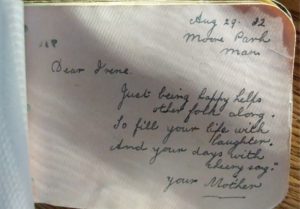 Aug 29 - 32
Moore Park
Man
Dear Irene.
Just being happy helps
other folk along.
So fill your life with
laughter.
And your days with
cheery song."
Your Mother